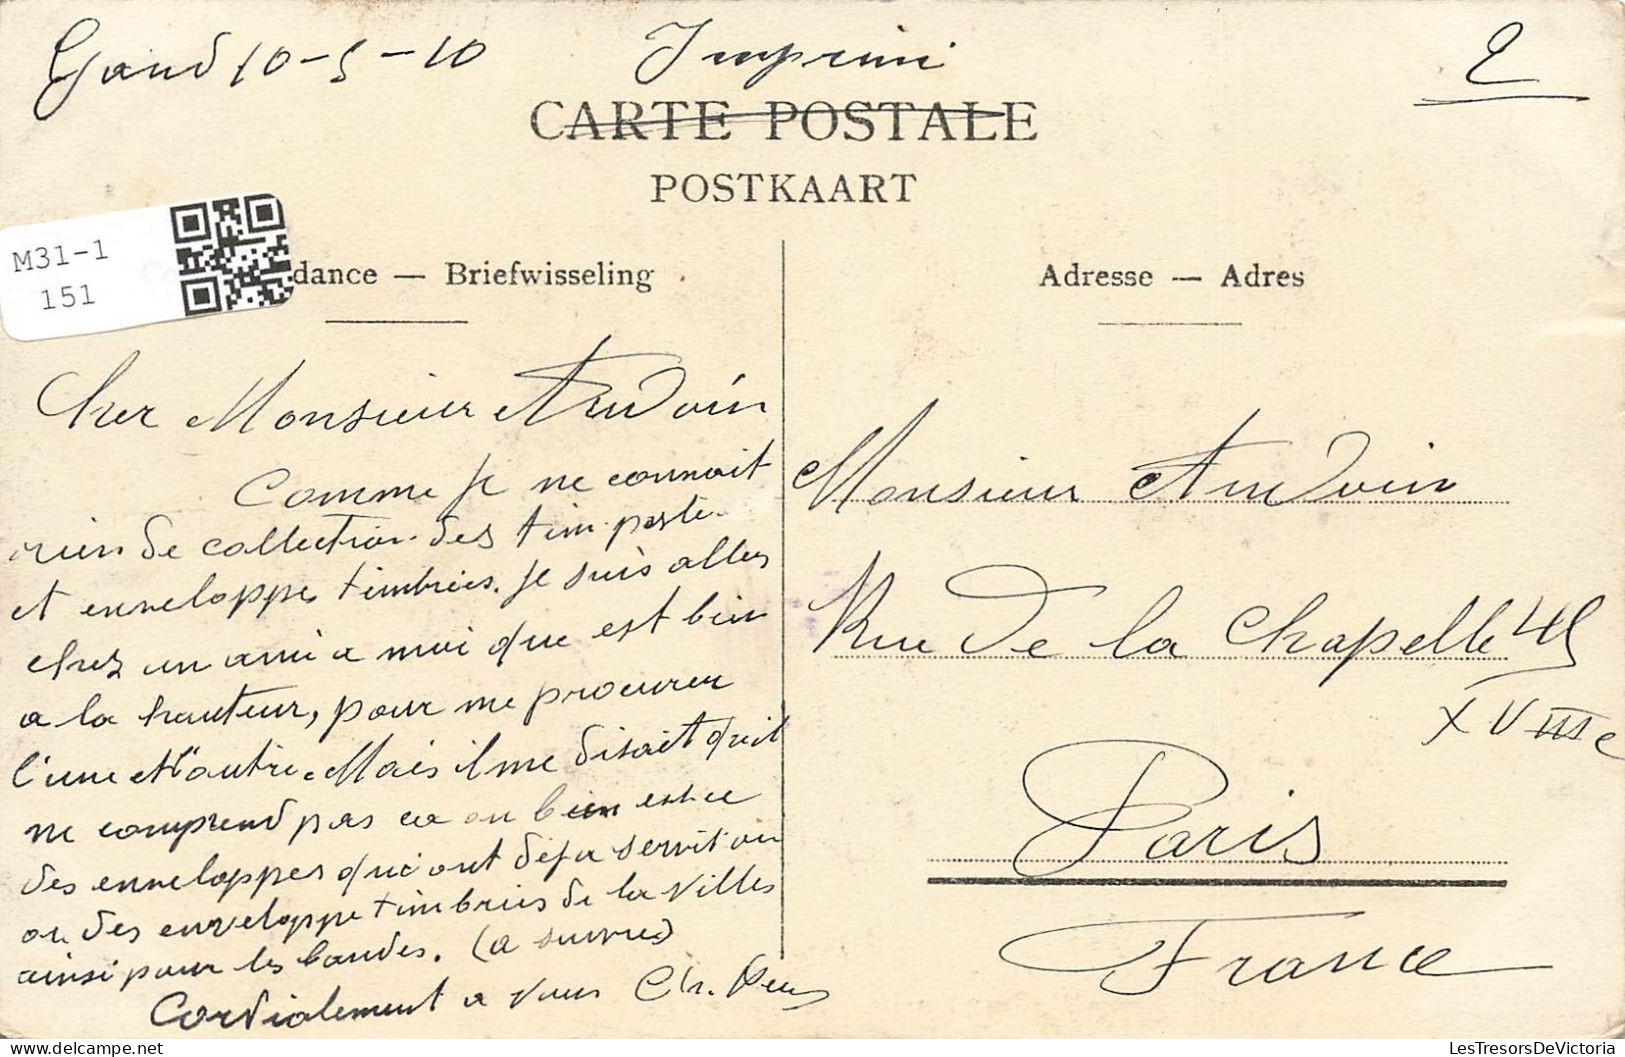 Gand 10-5-10
Imprimé
2
CARTE POSTALE
POSTKAART
M31-1
151
dance — Briefwisseling
Adresse — Adres
Cher Monsieur Audoin
Comme je ne connait
rien de collection des tim. poste
et enveloppe timbrées. je suis alles
chez un ami a moi que est bien
a la hauteur, pour me procurer
l'une et l'autre. Mais il me disait qu'il
ne comprend pas ca ou bien est ce
des enveloppes qui ont deja servit ou
ou des enveloppe timbries de la villes
ainsi pour les bandes. (a suivre)
Cordialement a vous Ch.
Monsieur Audoin
Rue de la Chapelle 45
XVIIIe
Paris
France
LesTresorsDeVictoria